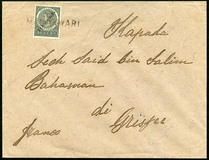 Kapada
Sech Said bin Salim
Bahasuan
di
Grissee
franco